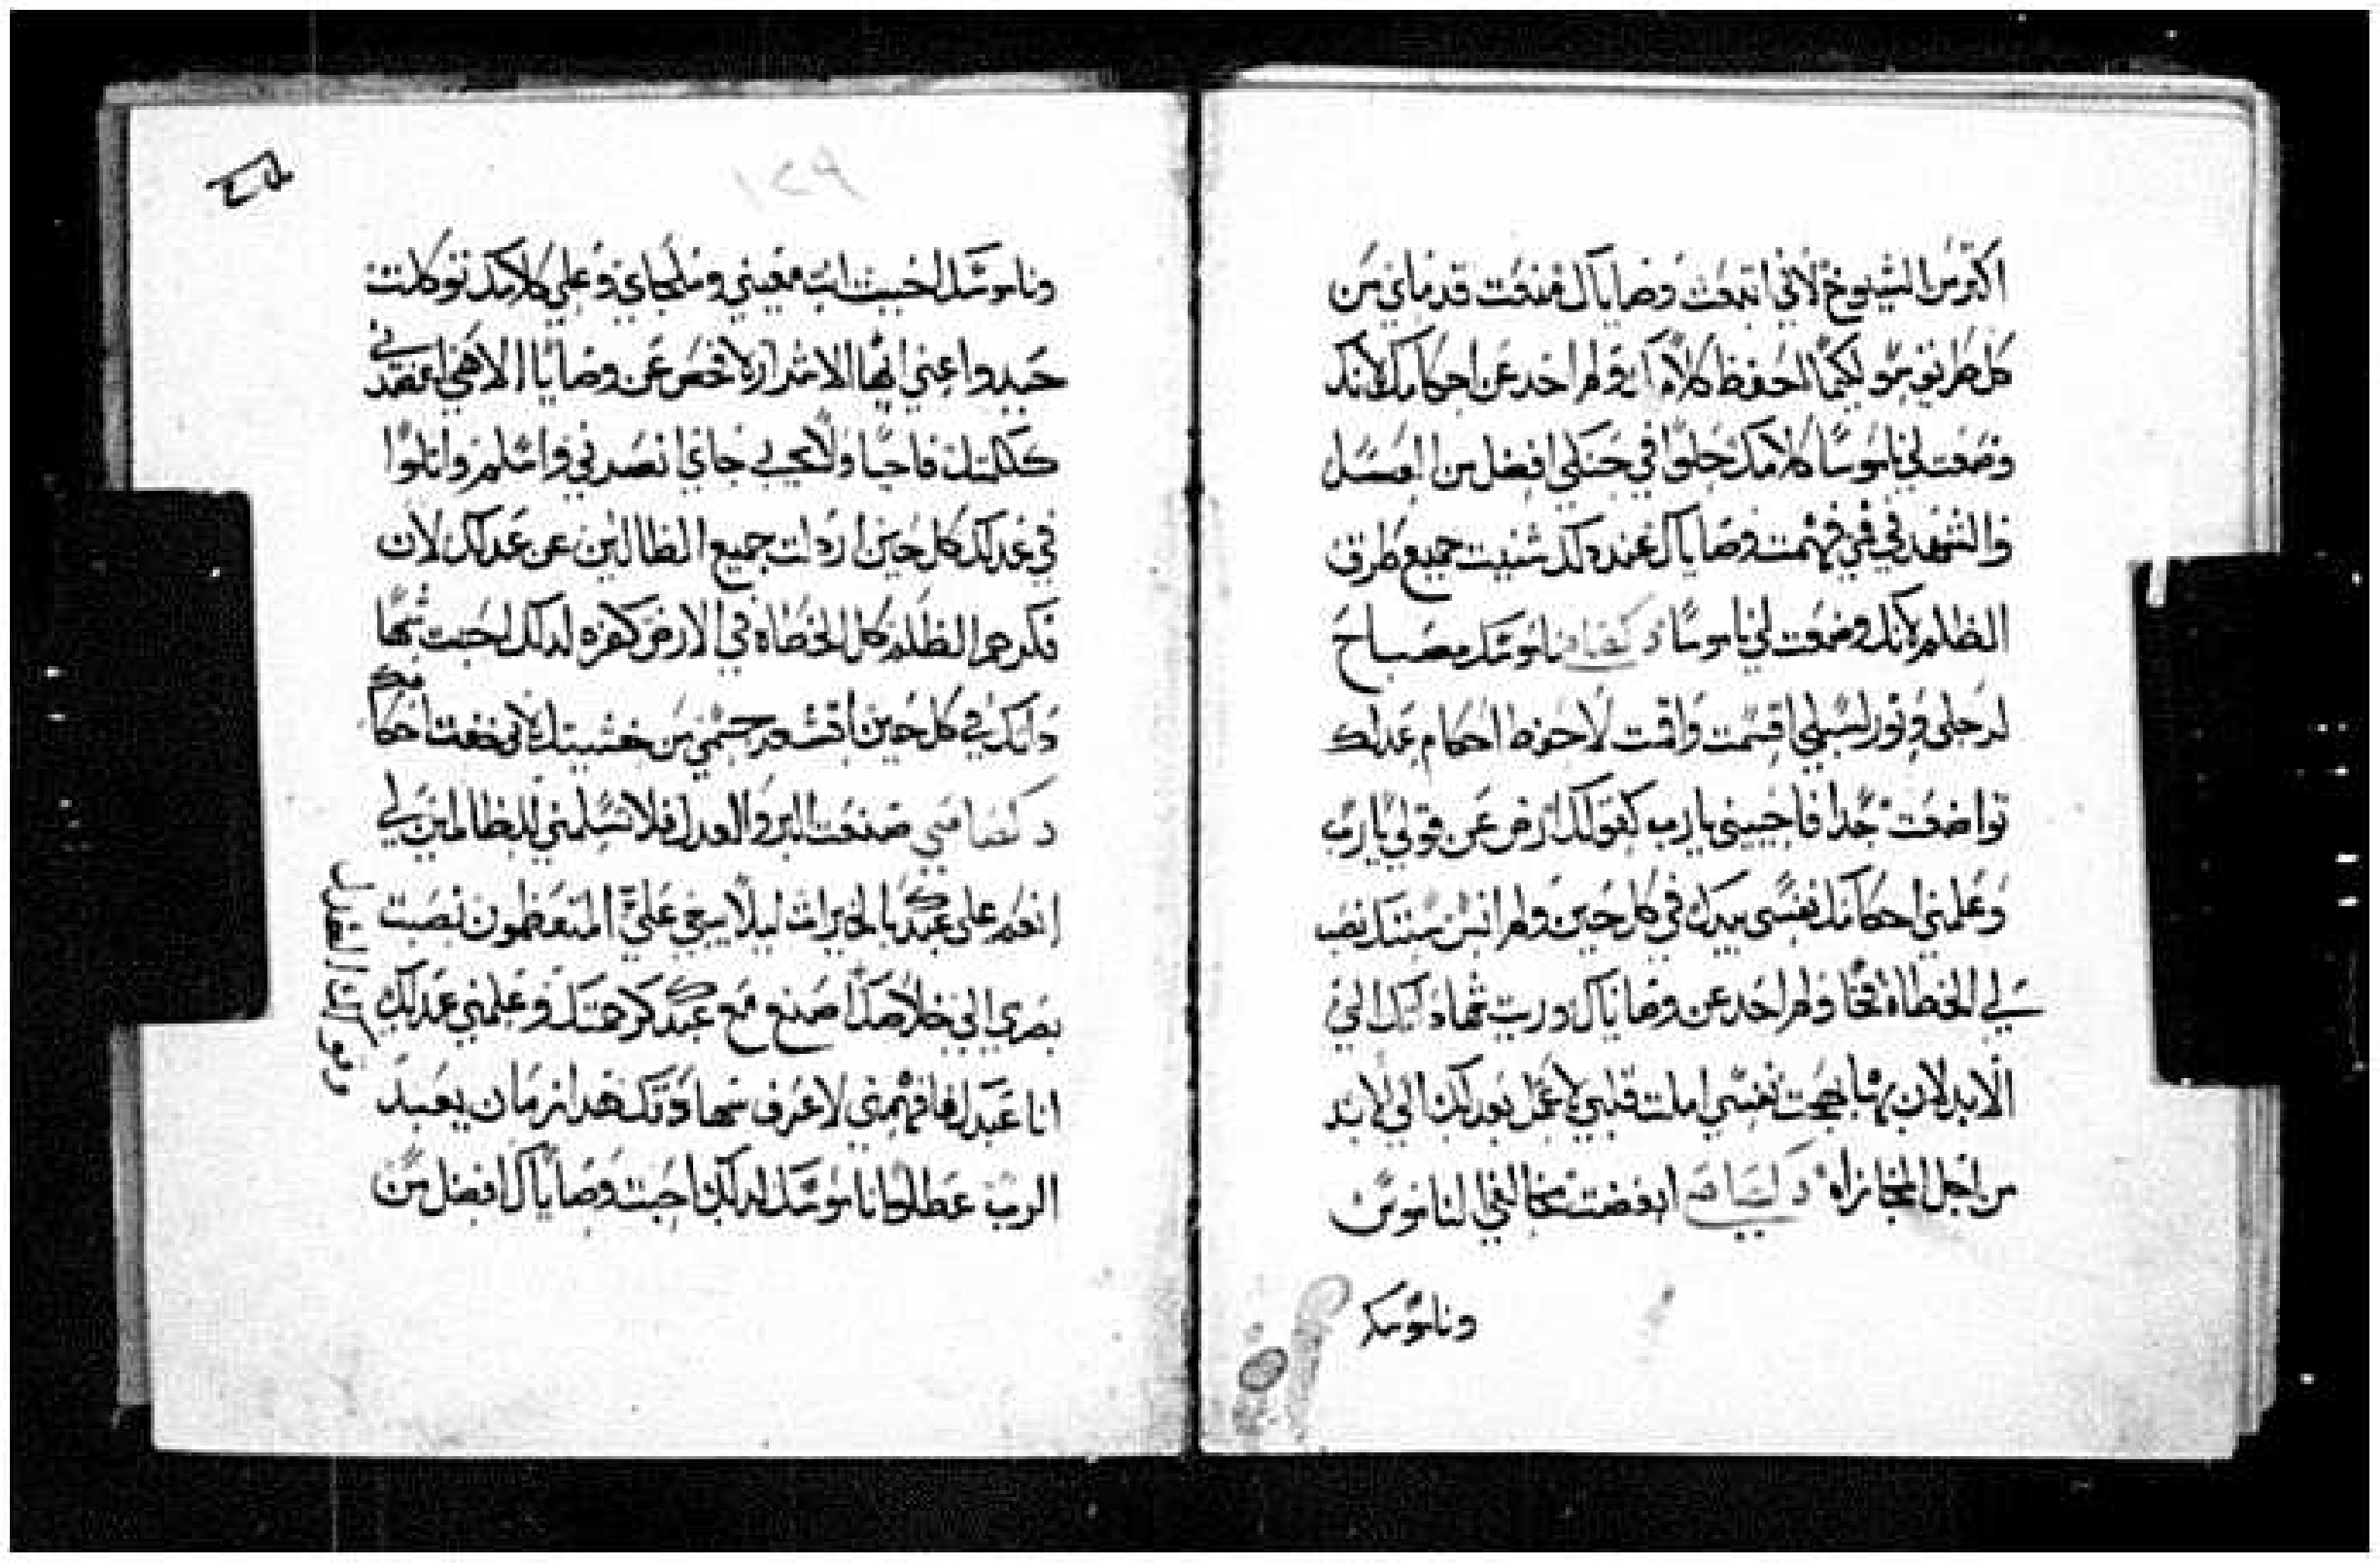 اكثر من الشيوخ لاني اتبعت وصاياك منعت قدماي من
كل طريق سو لكيما احفظ كلامك ولم احد عن احكامك لانك
وضعت لي ناموسا كلامك حلوا في حنكي افضل من العسل
والشهد في في فهمت وصاياك عند ذلك شنيت جميع طرق
الظلم لانك وضعت لي ناموسا ناموسك مصباح
لرجلي ونور لسبلي اقسمت واقمت لاحفظ احكام عدلك
تواضعت جدا فاحييني يارب كقولك ارض عن قولي يارب
وعلمني احكامك نفسي بيدك في كل حين ولم انس سنتك نصب
لي الخطاة فخا ولم احد عن وصاياك ورتث شهادتك الي
الابد لان بها بهجت نفسي املت قلبي لاعمل بعدلك الي الابد
من اجل المجازاة ابغضت مخالفي الناموس
وناموسك
١٢٩
وناموسك احببت انت معيني وملجاي وعلي كلامك توكلت
حيدوا عني ايها الاشرار لافحص عن وصايا الاهي اعضدني
ككلمتك فاحيا ولا تخيب رجاي انصرني فاسلم واتلوا
في عدلك كل حين ارذلت جميع الظالمين عن عدلك لان
فكرهم الظلم كل الخطاة في الارض كفره لذلك احببت شها
داتك في كل حين اقشعر جسمي من خشيتك لاني خفت احكامك
صنعت البر والعدل فلا تسلمني للظالمين لي
انعم علي عبدك بالخيرات ليلا يبغي علي المتعظمون نصبت
بصري الي خلاصك اصنع مع عبدك كرحمتك وعلمني عدلك
وقولك العدل
انا عبدك فافهمني لاعرف شهادتك هذا زمان يعبد
الرب عطلوا ناموسك لذلك احببت وصاياك افضل من